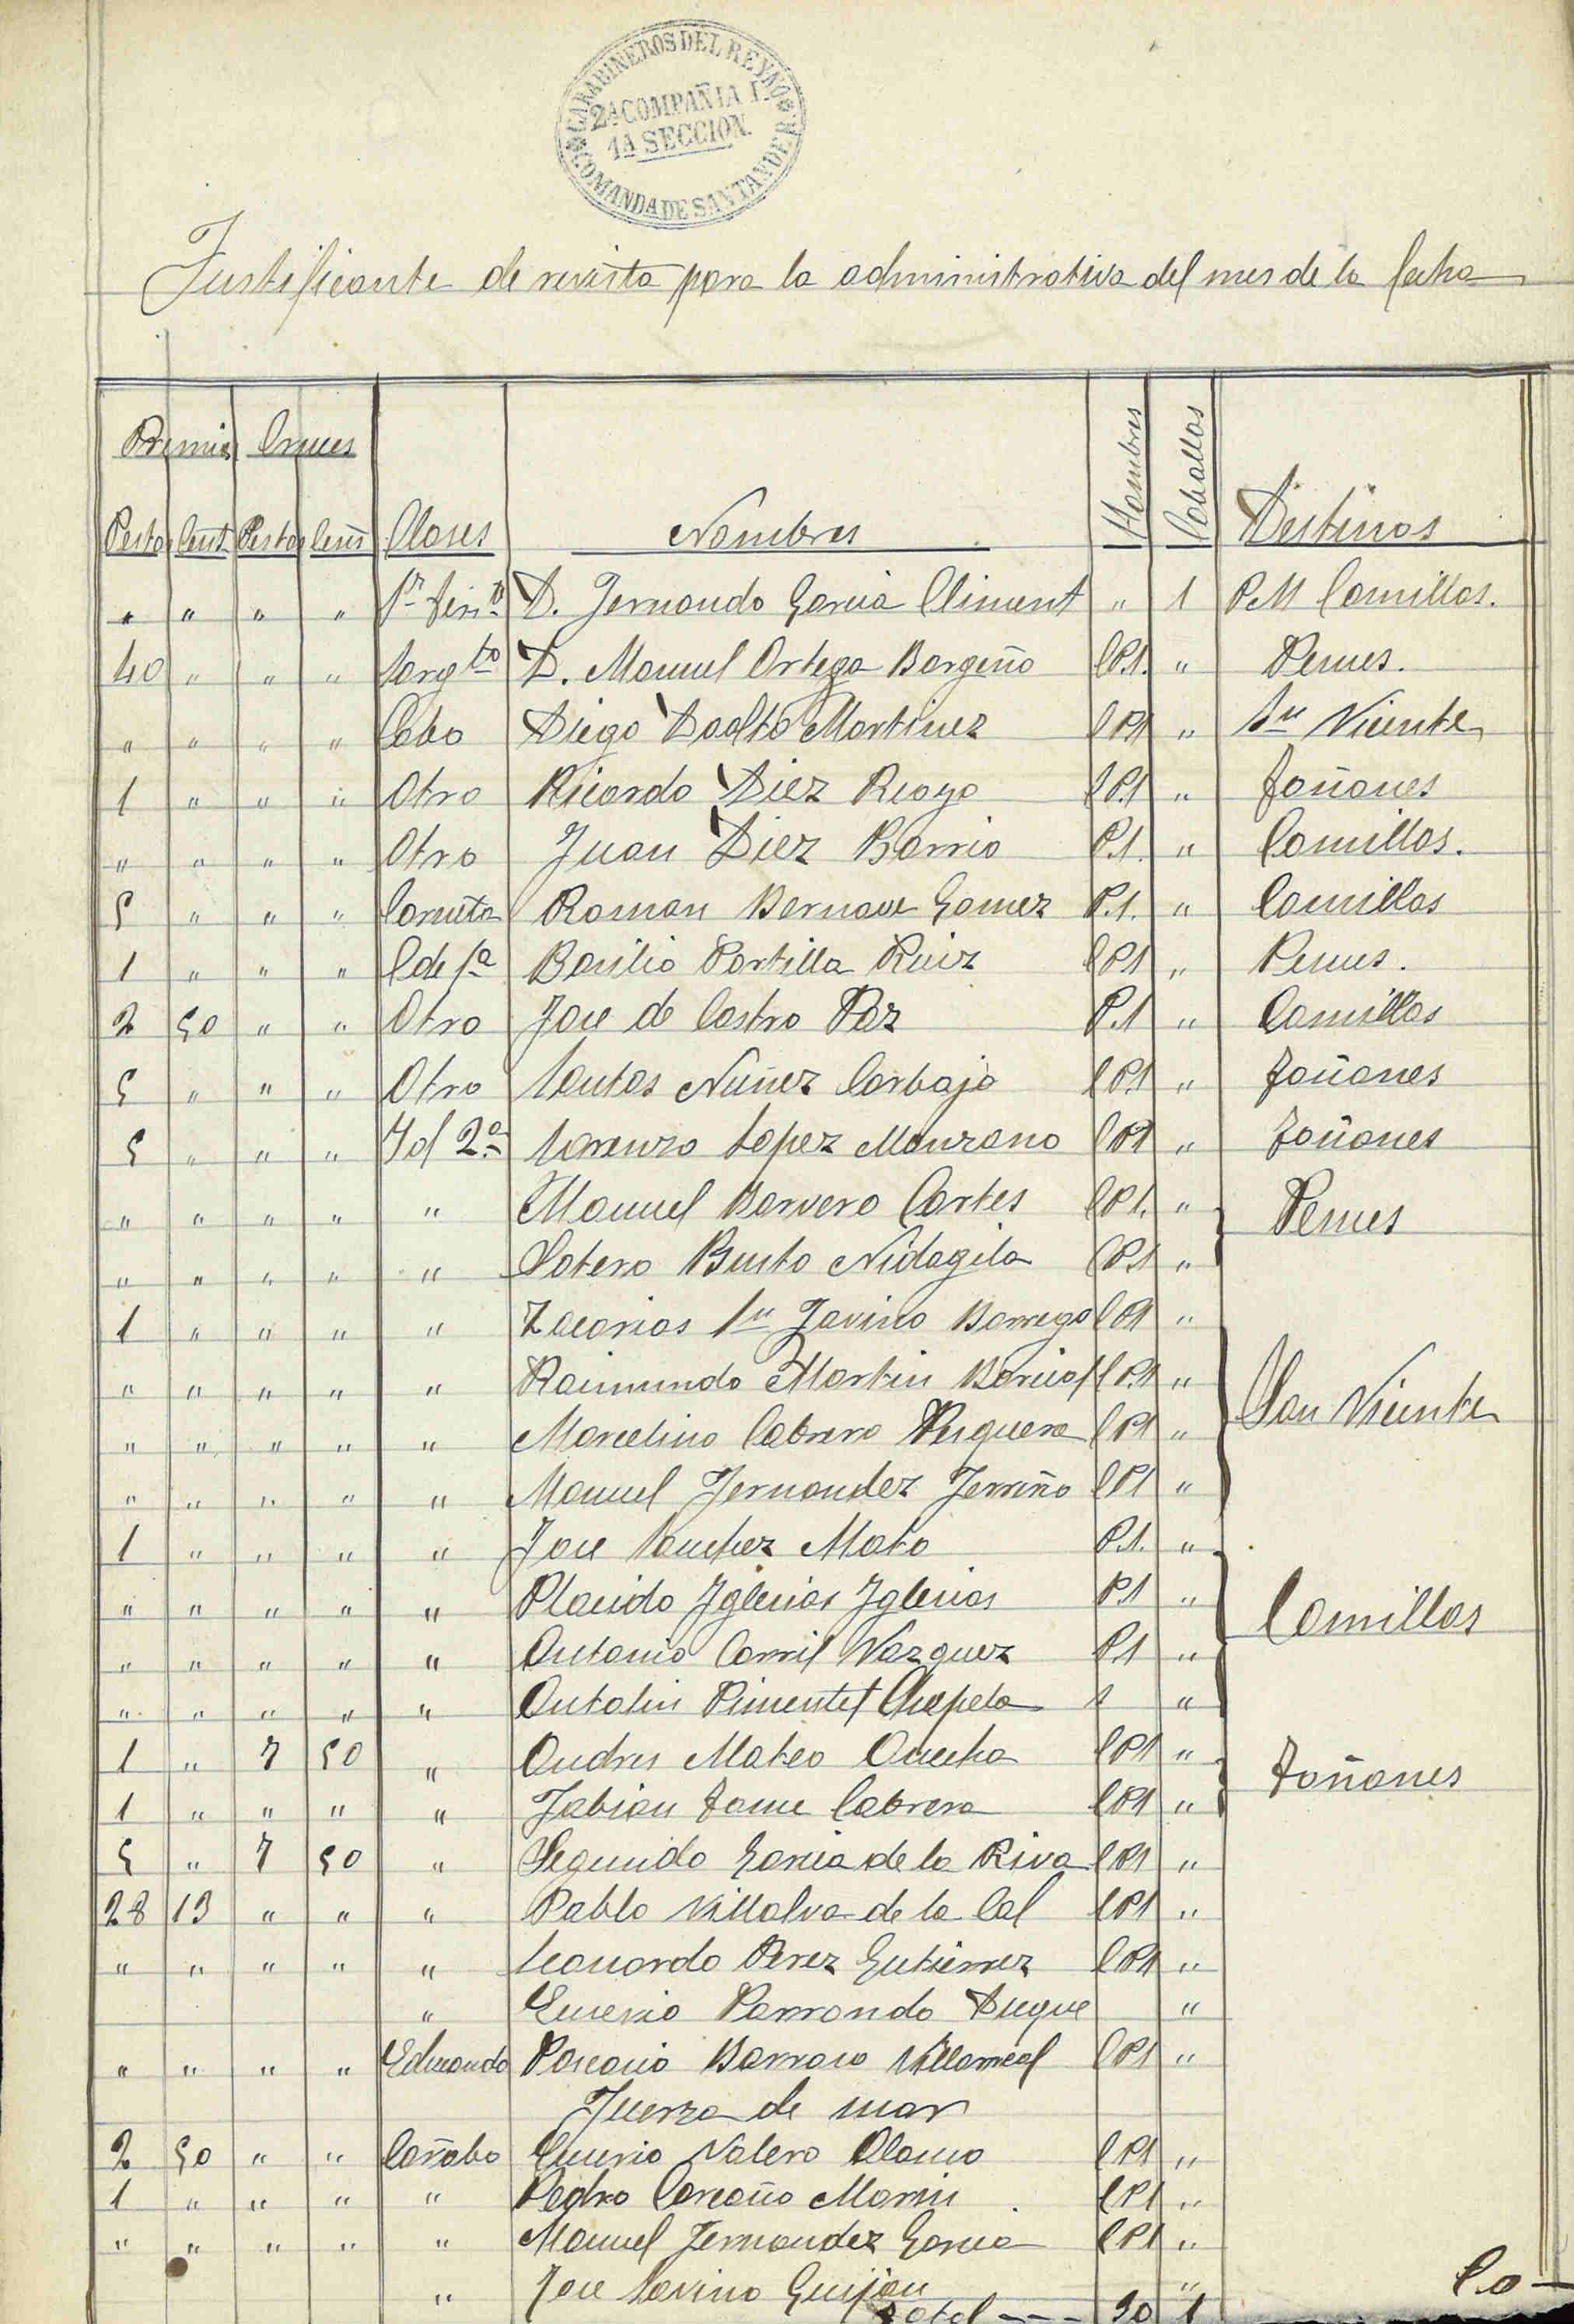 CARABINEROS DEL REYNO
2ª COMPAÑIA
1ª SECCION.
COMANDA DE SANTANDER
Justificante de revista para la administrativa del mes de la fecha
Premios Cruces Hombres Caballos
Pestas Cents Pestas Cents Clases Nombres Destinos
" " " " 1er Tente D. Fernando Garcia Climent " 1 P.M Comillas.
40 " " " Sargto D. Manuel Ortega Bargeño C P.1. " Pesues.
" " " " Cabo Diego Doalto Martinez C P.1 " Sn Vicente
1 " " " Otro Ricardo Diez Riayo C P.1 " Toñanes
" " " " Otro Juan Diez Barrio P.1. " Comillas.
5 " " " Corneta Roman Bernave Gomez P.1. " Comillas
1 " " " C de 1ª Basilio Portilla Ruiz C P.1 " Pesues.
2 50 " " Otro Jose de Castro Paz P.1 " Comillas
5 " " " Otro Santos Nuñez Carbajo C P.1 " Toñanes
5 " " " Id 2ª Lorenzo Lopez Manzano C P.1 " Toñanes
" " " " " Manuel Barvero Cortes C P.1. " Pesues
" " " " " Sotero Busto C P.1 "
1 " " " " Zacarias Sn Javino Borrego C P.1 "
" " " " " Raimundo Martin C P.1 " San Vicente
" " " " " Marcelino Cabrero C P.1 "
" " " " " Manuel Fernandez Ferriño C P.1 "
1 " " " " Jose Sanchez Mato P.1. "
" " " " " Placido Yglesias Yglesias P.1 " Comillas
" " " " " Antonio Carril Vazquez P.1 "
" " " " " Antolin Pimentel Chapela 1 "
1 " 7 50 " Andres Mateo C P.1 " Toñanes
1 " " " " Fabian Tome Cabrera C P.1 "
5 " 7 50 " Segundo Garcia de la Riva C P.1 "
28 13 " " " Pablo Villalva de la Cal C P.1 "
" " " " " Leonardo Perez Gutierrez C P.1 "
" Eusevio Parrondo Duque "
" " " " Educando Pascasio Barroso Villarreal C P.1 "
Fuerza de mar
2 50 " " Cañabo Eusevio Valero Olamo C P.1 "
1 " " " " Pedro Carcaño Marin C P.1 "
" " " " " Manuel Fernandez Garcia C P.1 "
" Jose Savino Guijon "
Total --- 30 1
Co-